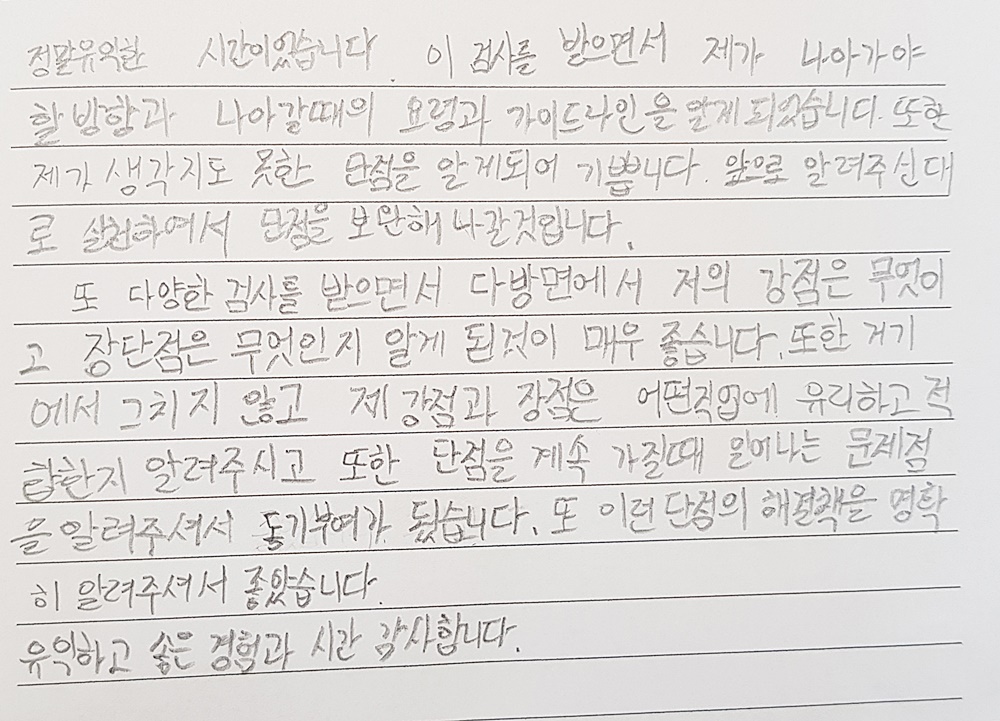 정말유익한 시간이었습니다. 이 검사를 받으면서 제가 나아가야
할 방향과 나아갈때의 요령과 가이드라인을 알게 되었습니다. 또한
제가 생각지도 못한 단점을 알게되어 기쁩니다. 앞으로 알려주신대
로 실천하여서 단점을 보완해 나갈것입니다.
또 다양한 검사를 받으면서 다방면에서 저의 강점은 무엇이
고 장단점은 무엇인지 알게 된것이 매우 좋습니다. 또한 거기
에서 그치지 않고 제 강점과 장점은 어떤직업에 유리하고 적
합한지 알려주시고 또한 단점을 계속 가질때 일어나는 문제점
을 알려주셔서 동기부여가 됬습니다. 또 이런 단점의 해결책을 명확
히 알려주셔서 좋았습니다.
유익하고 좋은 경험과 시간 감사합니다.